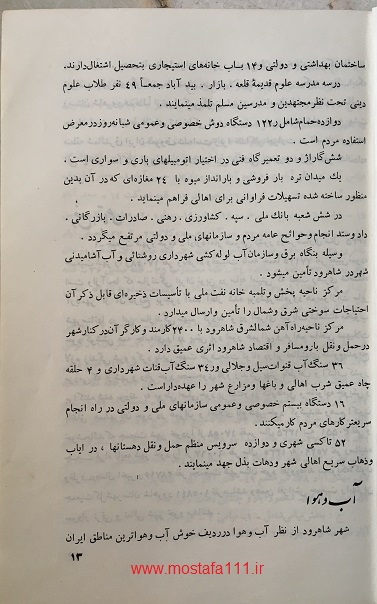 ساختمان بهداشتی و دولتی و ۱۴ باب خانه‌های استیجاری بتحصیل اشتغال‌دارند.
درسه مدرسه علوم قدیمهٔ قلعه . بازار . بید آباد جمعاً ۴۹ نفر طلاب علوم
دینی تحت نظر مجتهدین و مدرسین مسلم تلمذ مینمایند .
دوازده حمام شامل ۱۲۲ دستگاه دوش خصوصی وعمومی شبانه‌روز درمعرض
استفاده مردم است .
شش گاراژ و دو تعمیرگاه فنی در اختیار اتومبیلهای باری و سواری است .
یك میدان تره بار فروشی و بارانداز میوه با ۲۴ مغازه‌ای که در آن بدین
منظور ساخته شده تسهیلات فراوانی برای اهالی فراهم مینماید .
در شش شعبه بانك ملی . سپه . کشاورزی . رهنی . صادرات . بازرگانی .
داد وستد انجام وحوائج عامه مردم و سازمانهای ملی و دولتی مرتفع میگردد .
وسیله بنگاه برق وسازمان آب لوله‌کشی شهرداری روشنائی و آب آشامیدنی
شهر در شاهرود تأمین میشود .
مرکز ناحیه پخش وتلمبه خانه نفت ملی با تأسیسات ذخیره‌ای قابل ذکر آن
احتیاجات سوختی شرق وشمال را تأمین و ارسال میدارد .
مرکز ناحیه راه آهن شمالشرق شاهرود با ۲۴۰۰ کارمند وکارگر آن در کنار شهر
در حمل ونقل بار ومسافر و اقتصاد شاهرود اثری عمیق دارد .
۳۶ سنگ آب قنوات سیل و جلالی و ۳۴ سنگ آب قنات شهرداری و ۴ حلقه
چاه عمیق شرب اهالی و باغها ومزارع شهر را عهده‌دار است .
۱۶ دستگاه بیسیم خصوصی وعمومی سازمانهای ملی و دولتی در راه انجام
سریعتر کارهای مردم کار میکنند .
۵۲ تاکسی شهری و دوازده سرویس منظم حمل ونقل دهستانها ، در ایاب
وذهاب سریع اهالی شهر ودهات بذل جهد مینمایند .
آب و هوا
شهر شاهرود از نظر آب وهوا در ردیف خوش آب وهواترین مناطق ایران
۱۳
www.mostafa111.ir